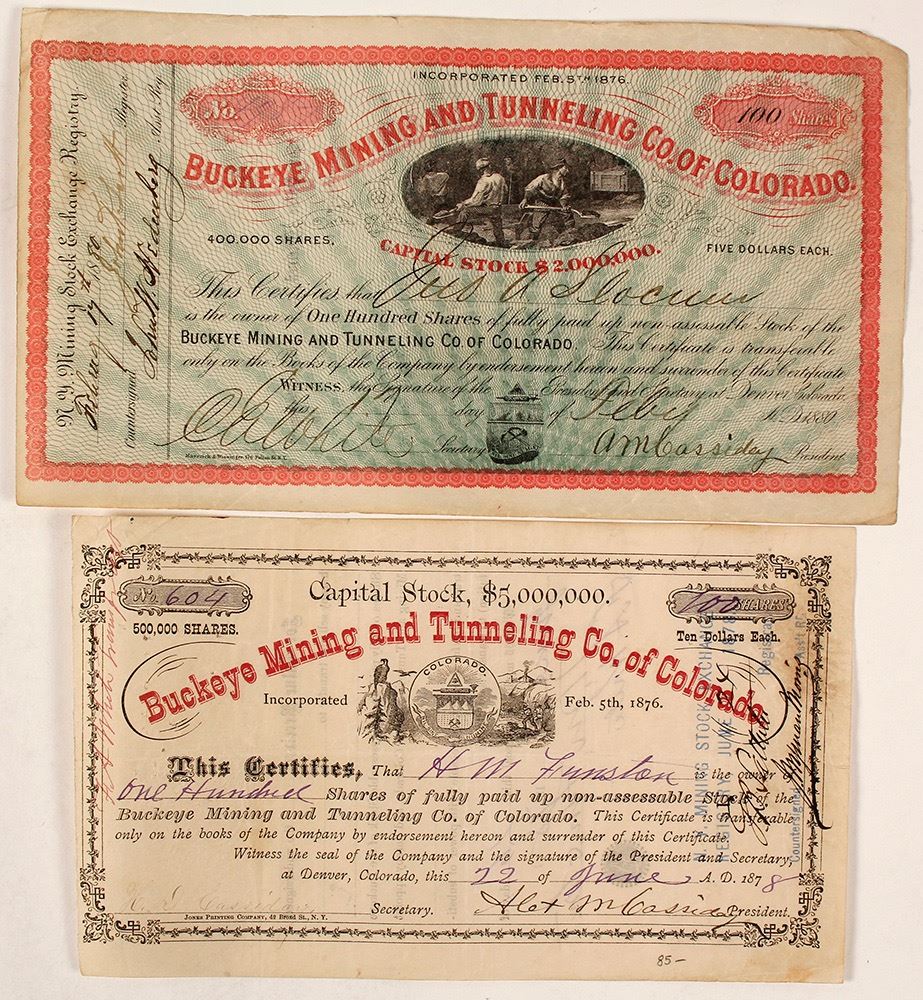 INCORPORATED FEB. 5TH 1876.
No.
100 Shares
BUCKEYE MINING AND TUNNELING CO. OF COLORADO.
400.000 SHARES.
CAPITAL STOCK $2.000,000.
FIVE DOLLARS EACH.
This Certifies that A. Slocum
is the owner of One Hundred Shares of fully paid up non-assessable Stock of the
BUCKEYE MINING AND TUNNELING CO. OF COLORADO. This Certificate is transferable
only on the Books of the Company by endorsement hereon and surrender of this Certificate
WITNESS, the Signature of the President and Secretary at Denver Colorado,
this day of Feby A.D. 1880
C A White Secretary
A M Cassiday President.
N.Y. Mining Stock Exchange Registry
1880
Registrar
Countersigned
Asst. Reg.
No. 604
Capital Stock, $5,000,000.
100 SHARES
500,000 SHARES.
Ten Dollars Each.
Buckeye Mining and Tunneling Co. of Colorado.
Incorporated
COLORADO.
Feb. 5th, 1876.
This Certifies, That H M Funston is the owner of
One Hundred Shares of fully paid up non-assessable Stock of the
Buckeye Mining and Tunneling Co. of Colorado. This Certificate is transferable
only on the books of the Company by endorsement hereon and surrender of this Certificate.
Witness the seal of the Company and the signature of the President and Secretary,
at Denver, Colorado, this 22 of June A. D. 1878
Secretary.
Alex M Cassiday President.
JONES PRINTING COMPANY, 42 BROAD ST., N. Y.
N.Y. MINING STOCK EXCHANGE
REGISTRY JUNE
Registrar
Countersigned
Asst R.
85-